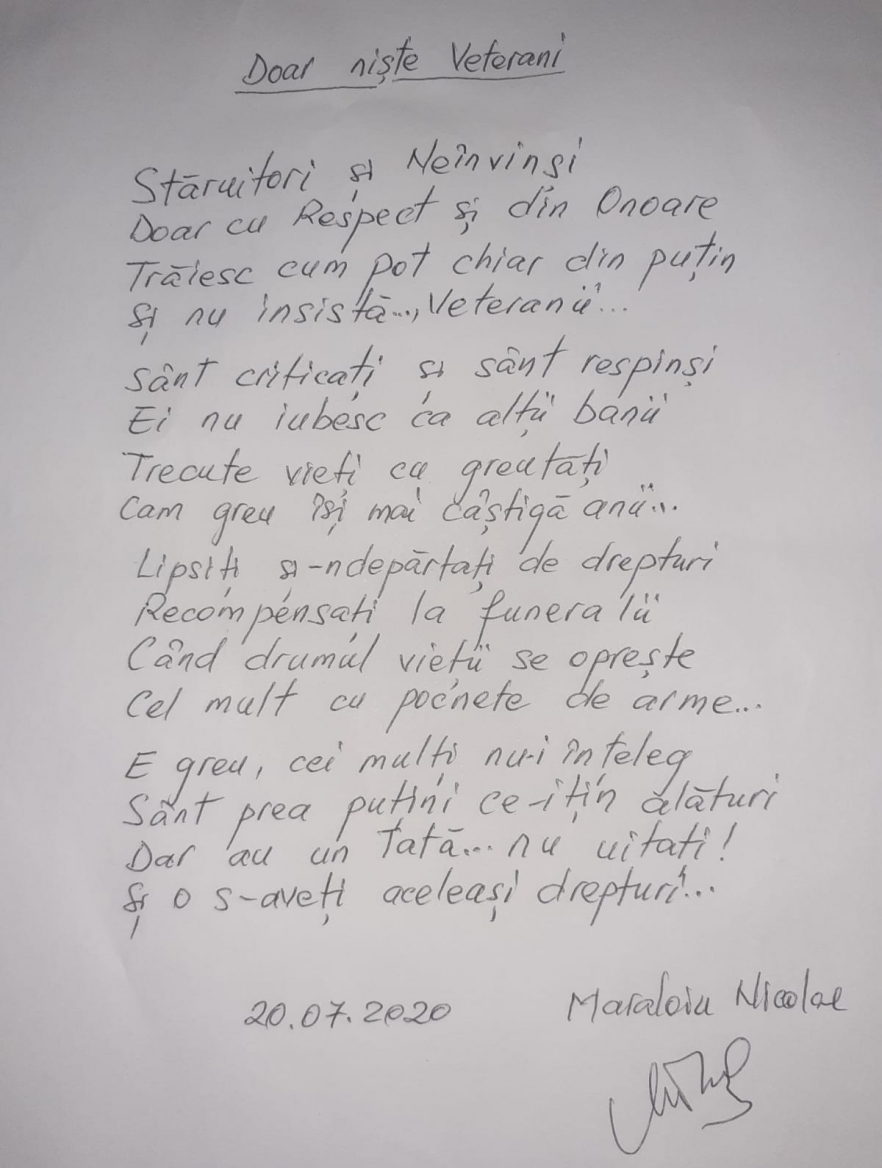 Doar niște Veterani
Stăruitori și Neînvinși
Doar cu Respect și din Onoare
Trăiesc cum pot chiar din puțin
Și nu insistă..., Veteranii...
Sânt criticați și sânt respinși
Ei nu iubesc ca alții banii
Trecute vieți cu greutăți
Cam greu își mai câștigă anii...
Lipsiți și-ndepărtați de drepturi
Recompensați la funeralii
Când drumul vieții se oprește
Cel mult cu pocnete de arme...
E greu, cei mulți nu-i înțeleg
Sânt prea puțini ce-i țin alături
Dar au un Tată... nu uitați!
Și o s-aveți aceleași drepturi...
20.07.2020 Maraloiu Nicolae